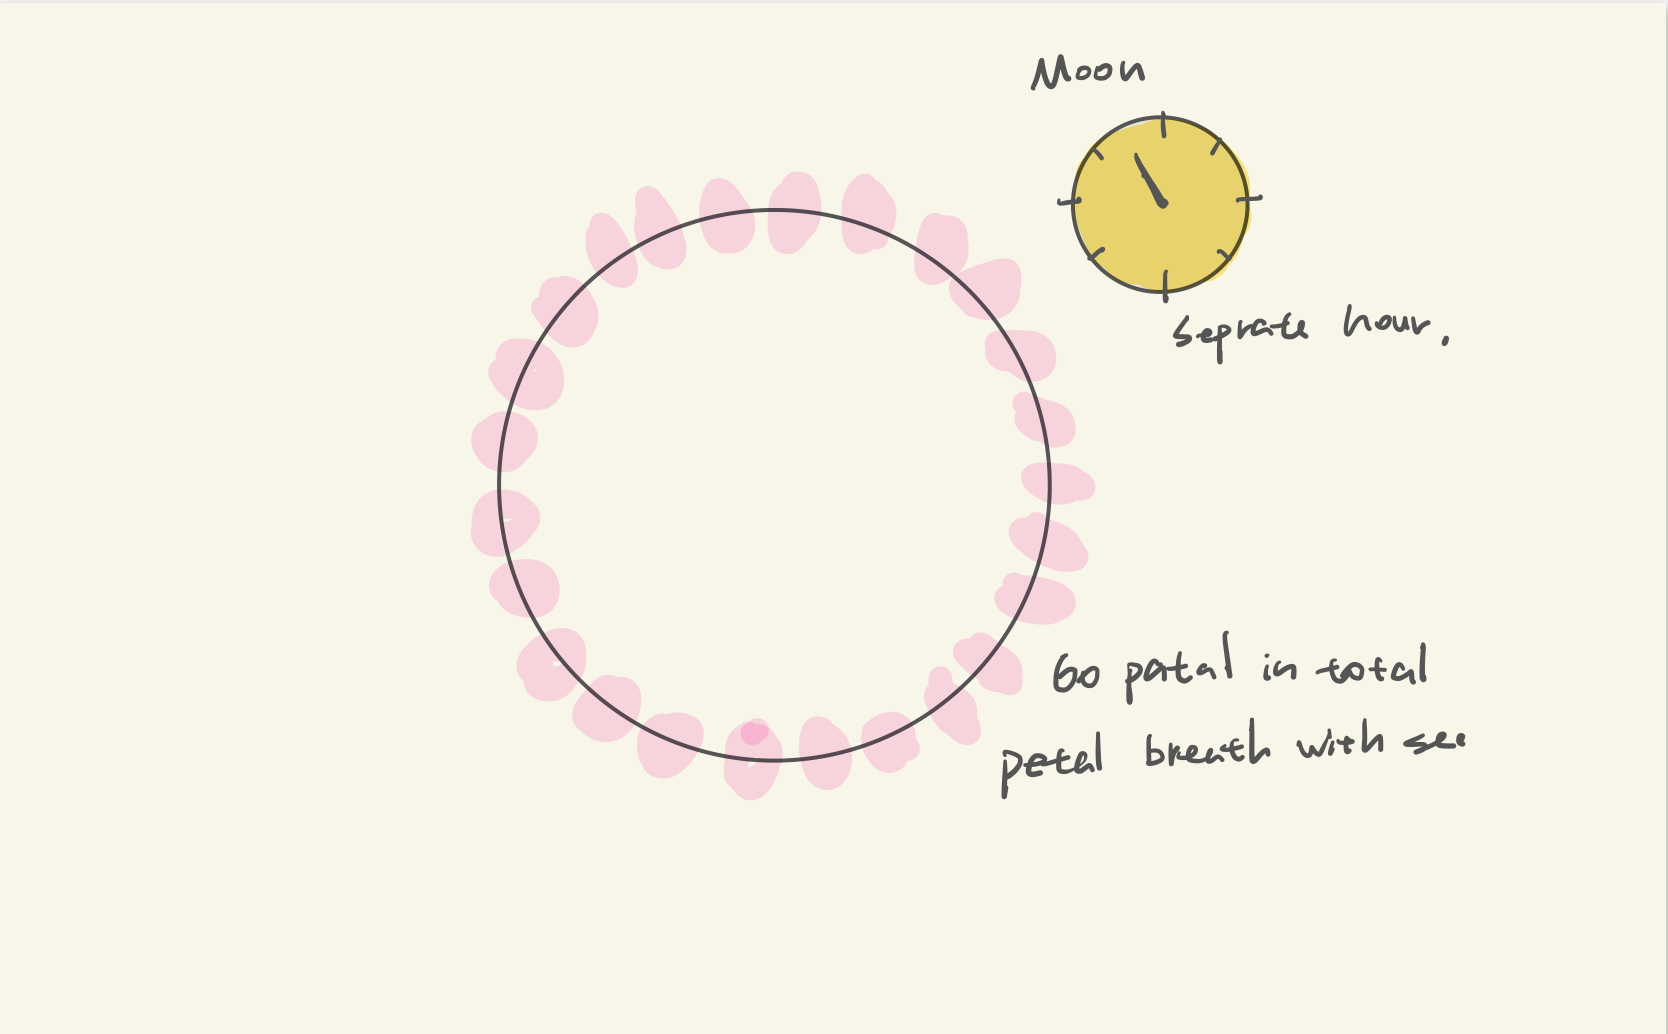 Moon
seprate hour.
60 patal in total
petal breath with sec